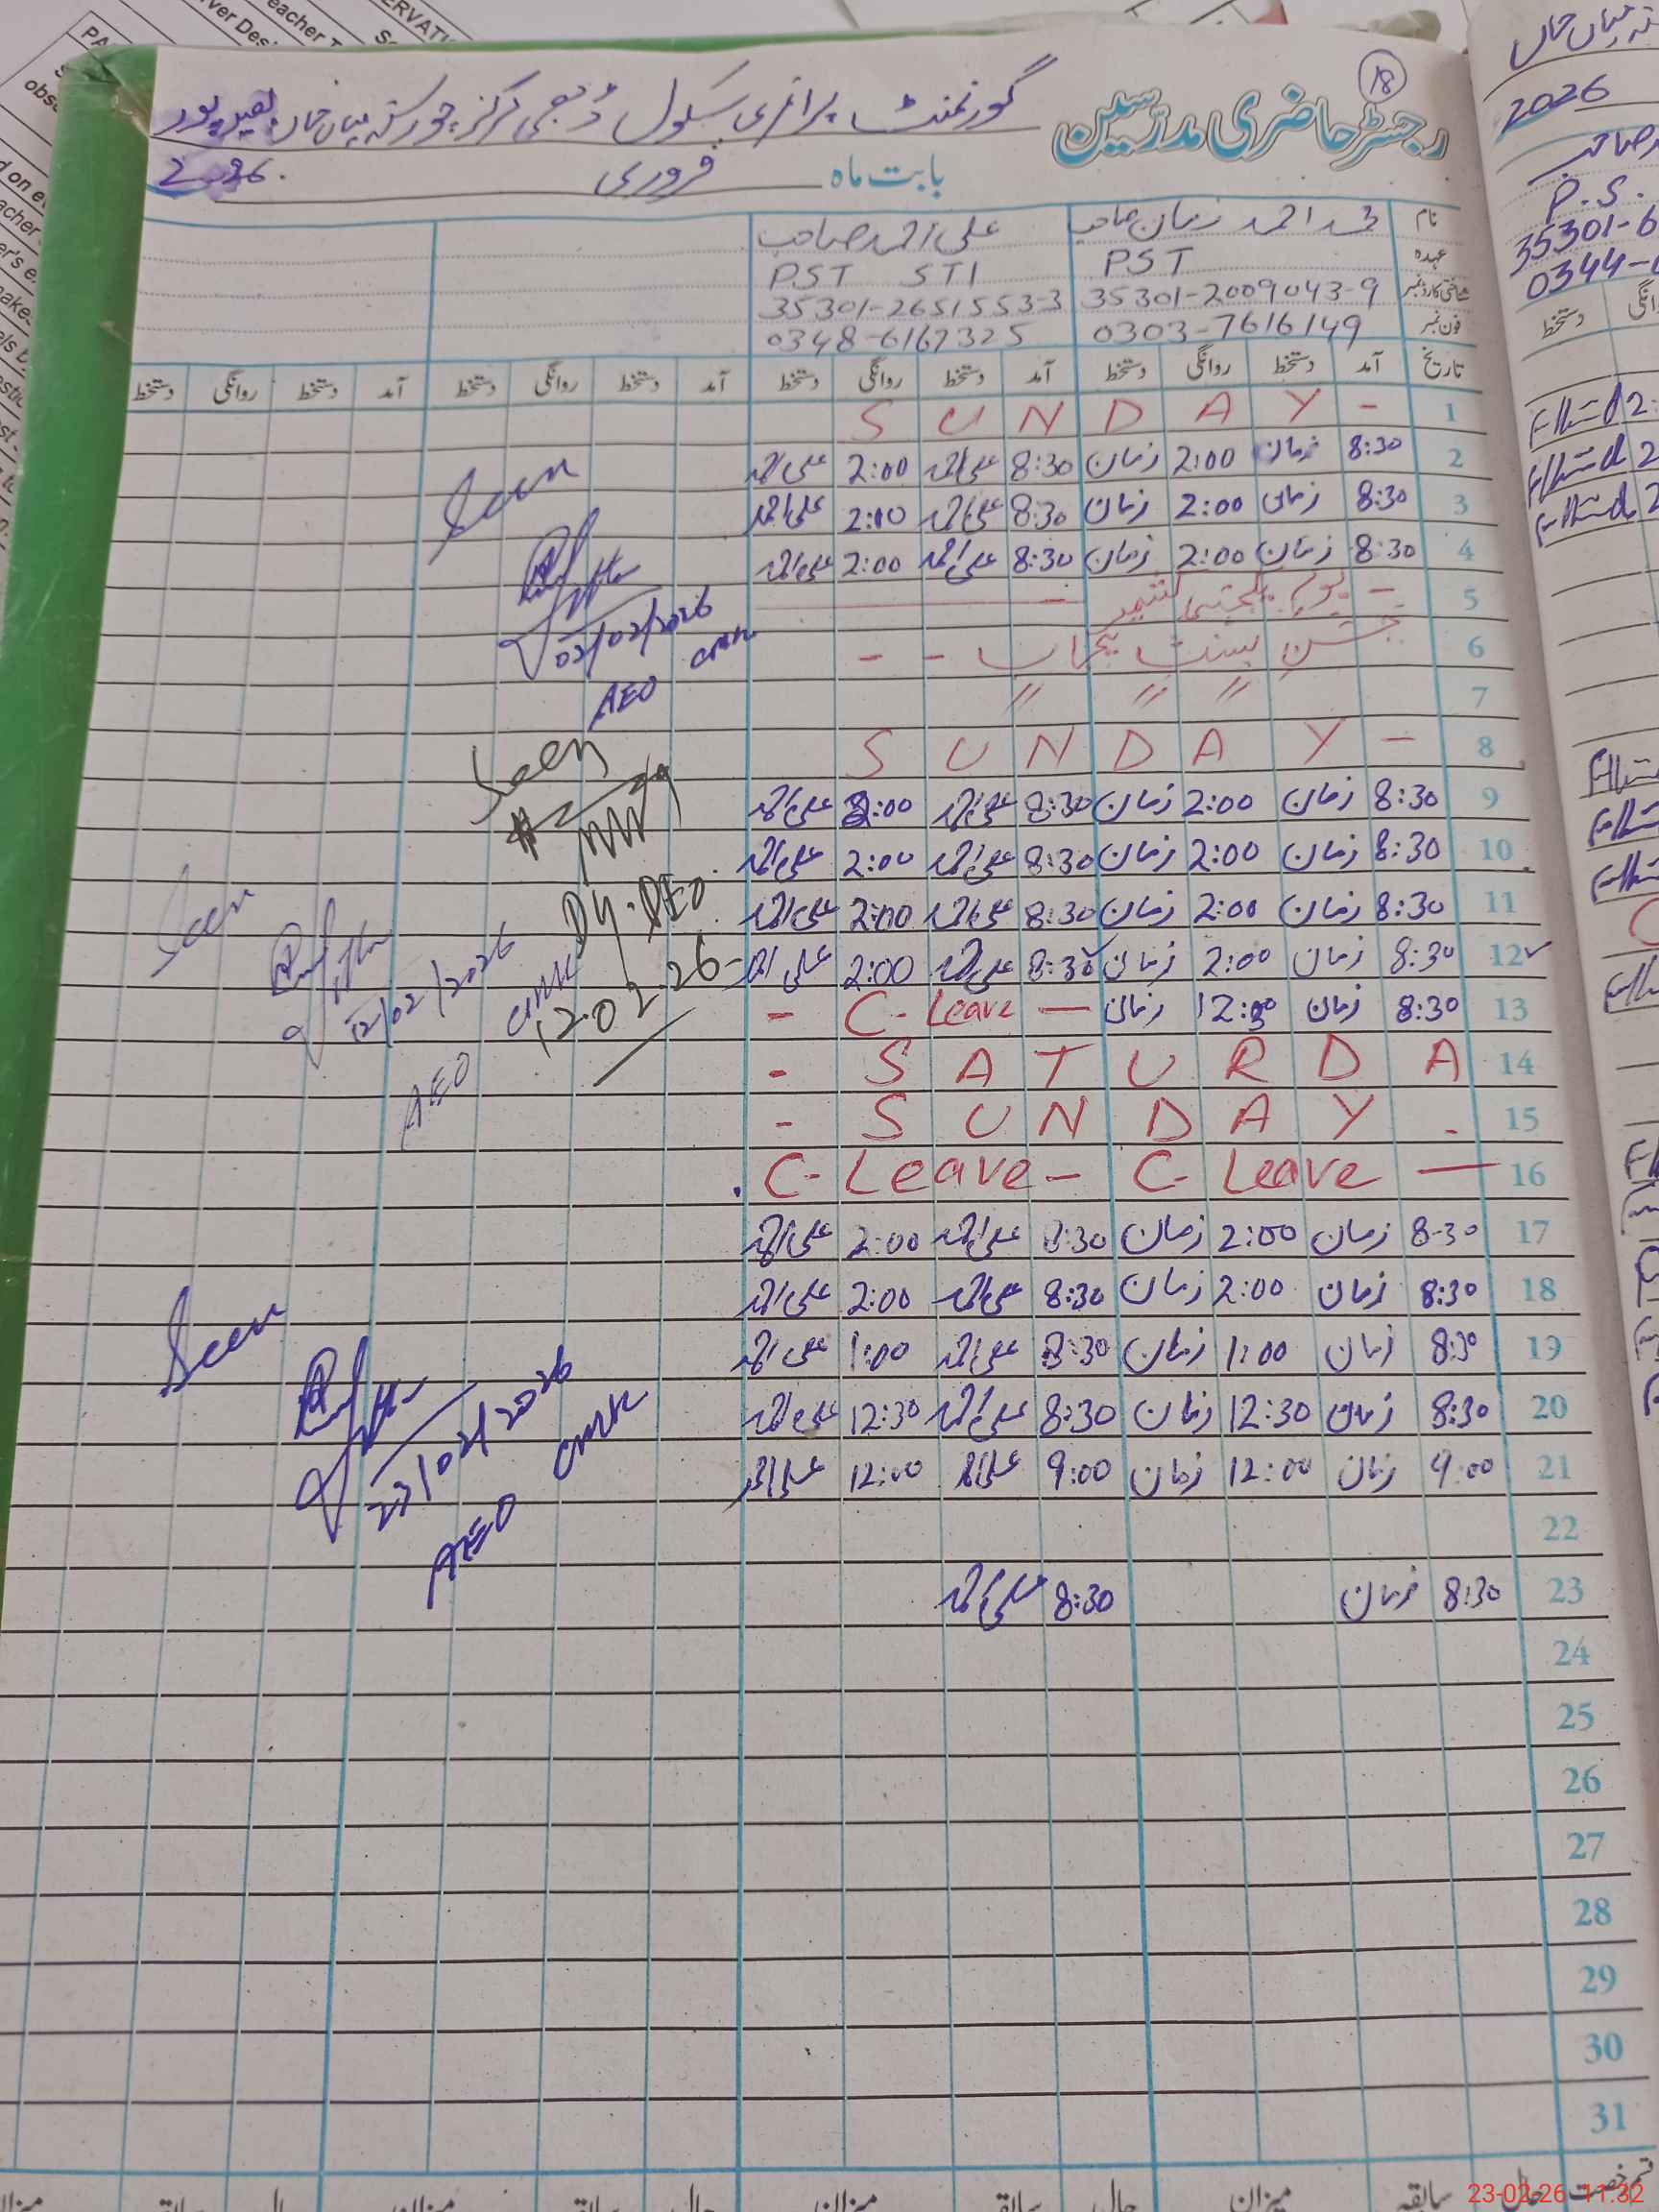 رجسٹر حاضری مدرسین
18
گورنمنٹ پرائمری سکول مرکز میاں خان بصیرپور
بابت ماہ فروری 2026
نام محمد احمد زمان صاحب علی احمد صاحب
عہدہ PST PST STI
شناختی کارڈ نمبر 35301-2009043-9 35301-2651553-3
فون نمبر 0303-7616149 0348-6167325
تاریخ آمد دستخط روانگی دستخط آمد دستخط روانگی دستخط آمد دستخط روانگی دستخط آمد دستخط روانگی دستخط
1 SUNDAY -
2 8:30 زمان 2:00 زمان 8:30 علی احمد 2:00 علی احمد
3 8:30 زمان 2:00 زمان 8:30 علی احمد 2:00 علی احمد
4 8:30 زمان 2:00 زمان 8:30 علی احمد 2:00 علی احمد
5 - یوم یکجہتی کشمیر -
6 جشن بسنت پنجاب - -
7 〃 〃 〃
8 SUNDAY -
9 8:30 زمان 2:00 زمان 8:30 علی احمد 2:00 علی احمد
10 8:30 زمان 2:00 زمان 8:30 علی احمد 2:00 علی احمد
11 8:30 زمان 2:00 زمان 8:30 علی احمد 2:00 علی احمد
12 ✓ 8:30 زمان 2:00 زمان 8:30 علی احمد 2:00 علی احمد
13 8:30 زمان 12:00 زمان — C-Leave -
14 - SATURDA
15 - SUNDAY -
16 C-Leave - C-Leave —
17 8-30 زمان 2:00 زمان 8:30 علی احمد 2:00 علی احمد
18 8:30 زمان 2:00 زمان 8:30 علی احمد 2:00 علی احمد
19 8:30 زمان 1:00 زمان 8:30 علی احمد 1:00 علی احمد
20 8:30 زمان 12:30 زمان 8:30 علی احمد 12:30 علی احمد
21 9:00 زمان 12:00 زمان 9:00 علی احمد 12:00 علی احمد
22
23 8:30 زمان 8:30 علی احمد
24
25
26
27
28
29
30
31
Seen
02/02/2026
AEO CMK
Seen
DY.DEO
12.02.26
Seen
12/02/2026
AEO CMK
Seen
23/02/2026
AEO CMK
قسم رخصت حال سابقہ میزان حال سابقہ میزان حال سابقہ میزان حال سابقہ میزان
میاں خان
2026
صاحب
P.S.
35301-6
0344-
روانگی دستخط
23-02-26 11:32